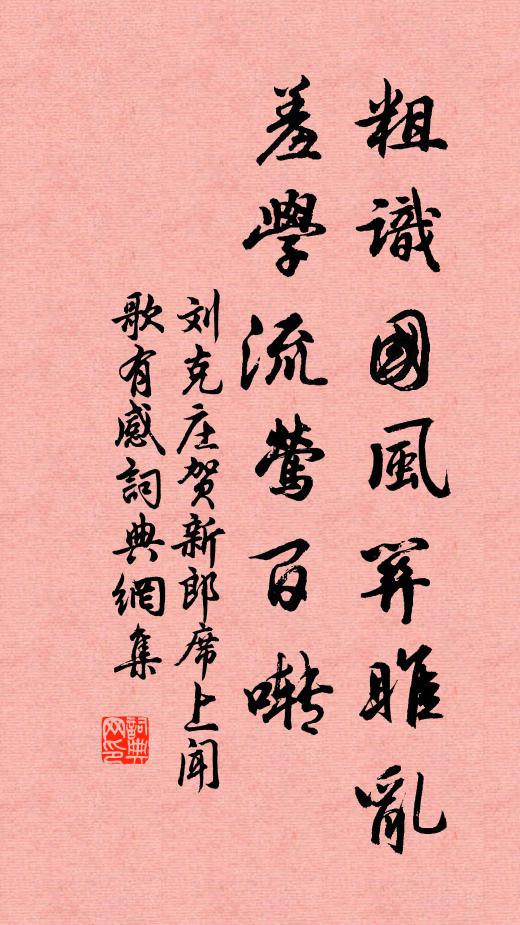 粗識國風關雎亂
羞學流鶯百囀
刘克庄贺新郎席上闻
歌有感詞典網集
詞典网印